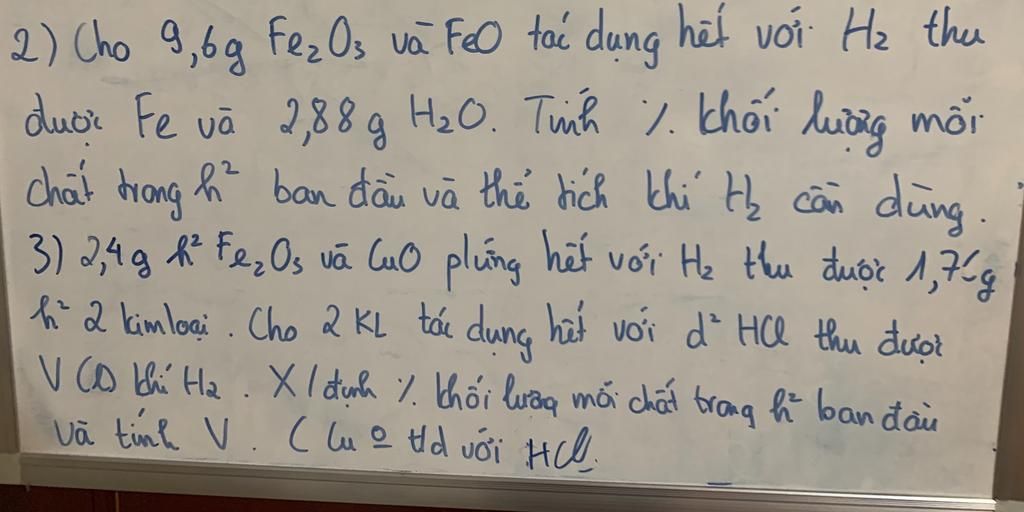 2) Cho 9,6g Fe₂O₃ và FeO tác dụng hết với H₂ thu
được Fe và 2,88g H₂O. Tính % khối lượng mỗi
chất trong h² ban đầu và thể tích khí H₂ cần dùng.
3) 2,4g h² Fe₂O₃ và CuO p/ứng hết với H₂ thu được 1,76g
h² 2 kim loại. Cho 2 KL tác dụng hết với d² HCl thu được
V (l) khí H₂. X/định % khối lượng mỗi chất trong h² ban đầu
và tính V. (Cu o t/d với HCl.